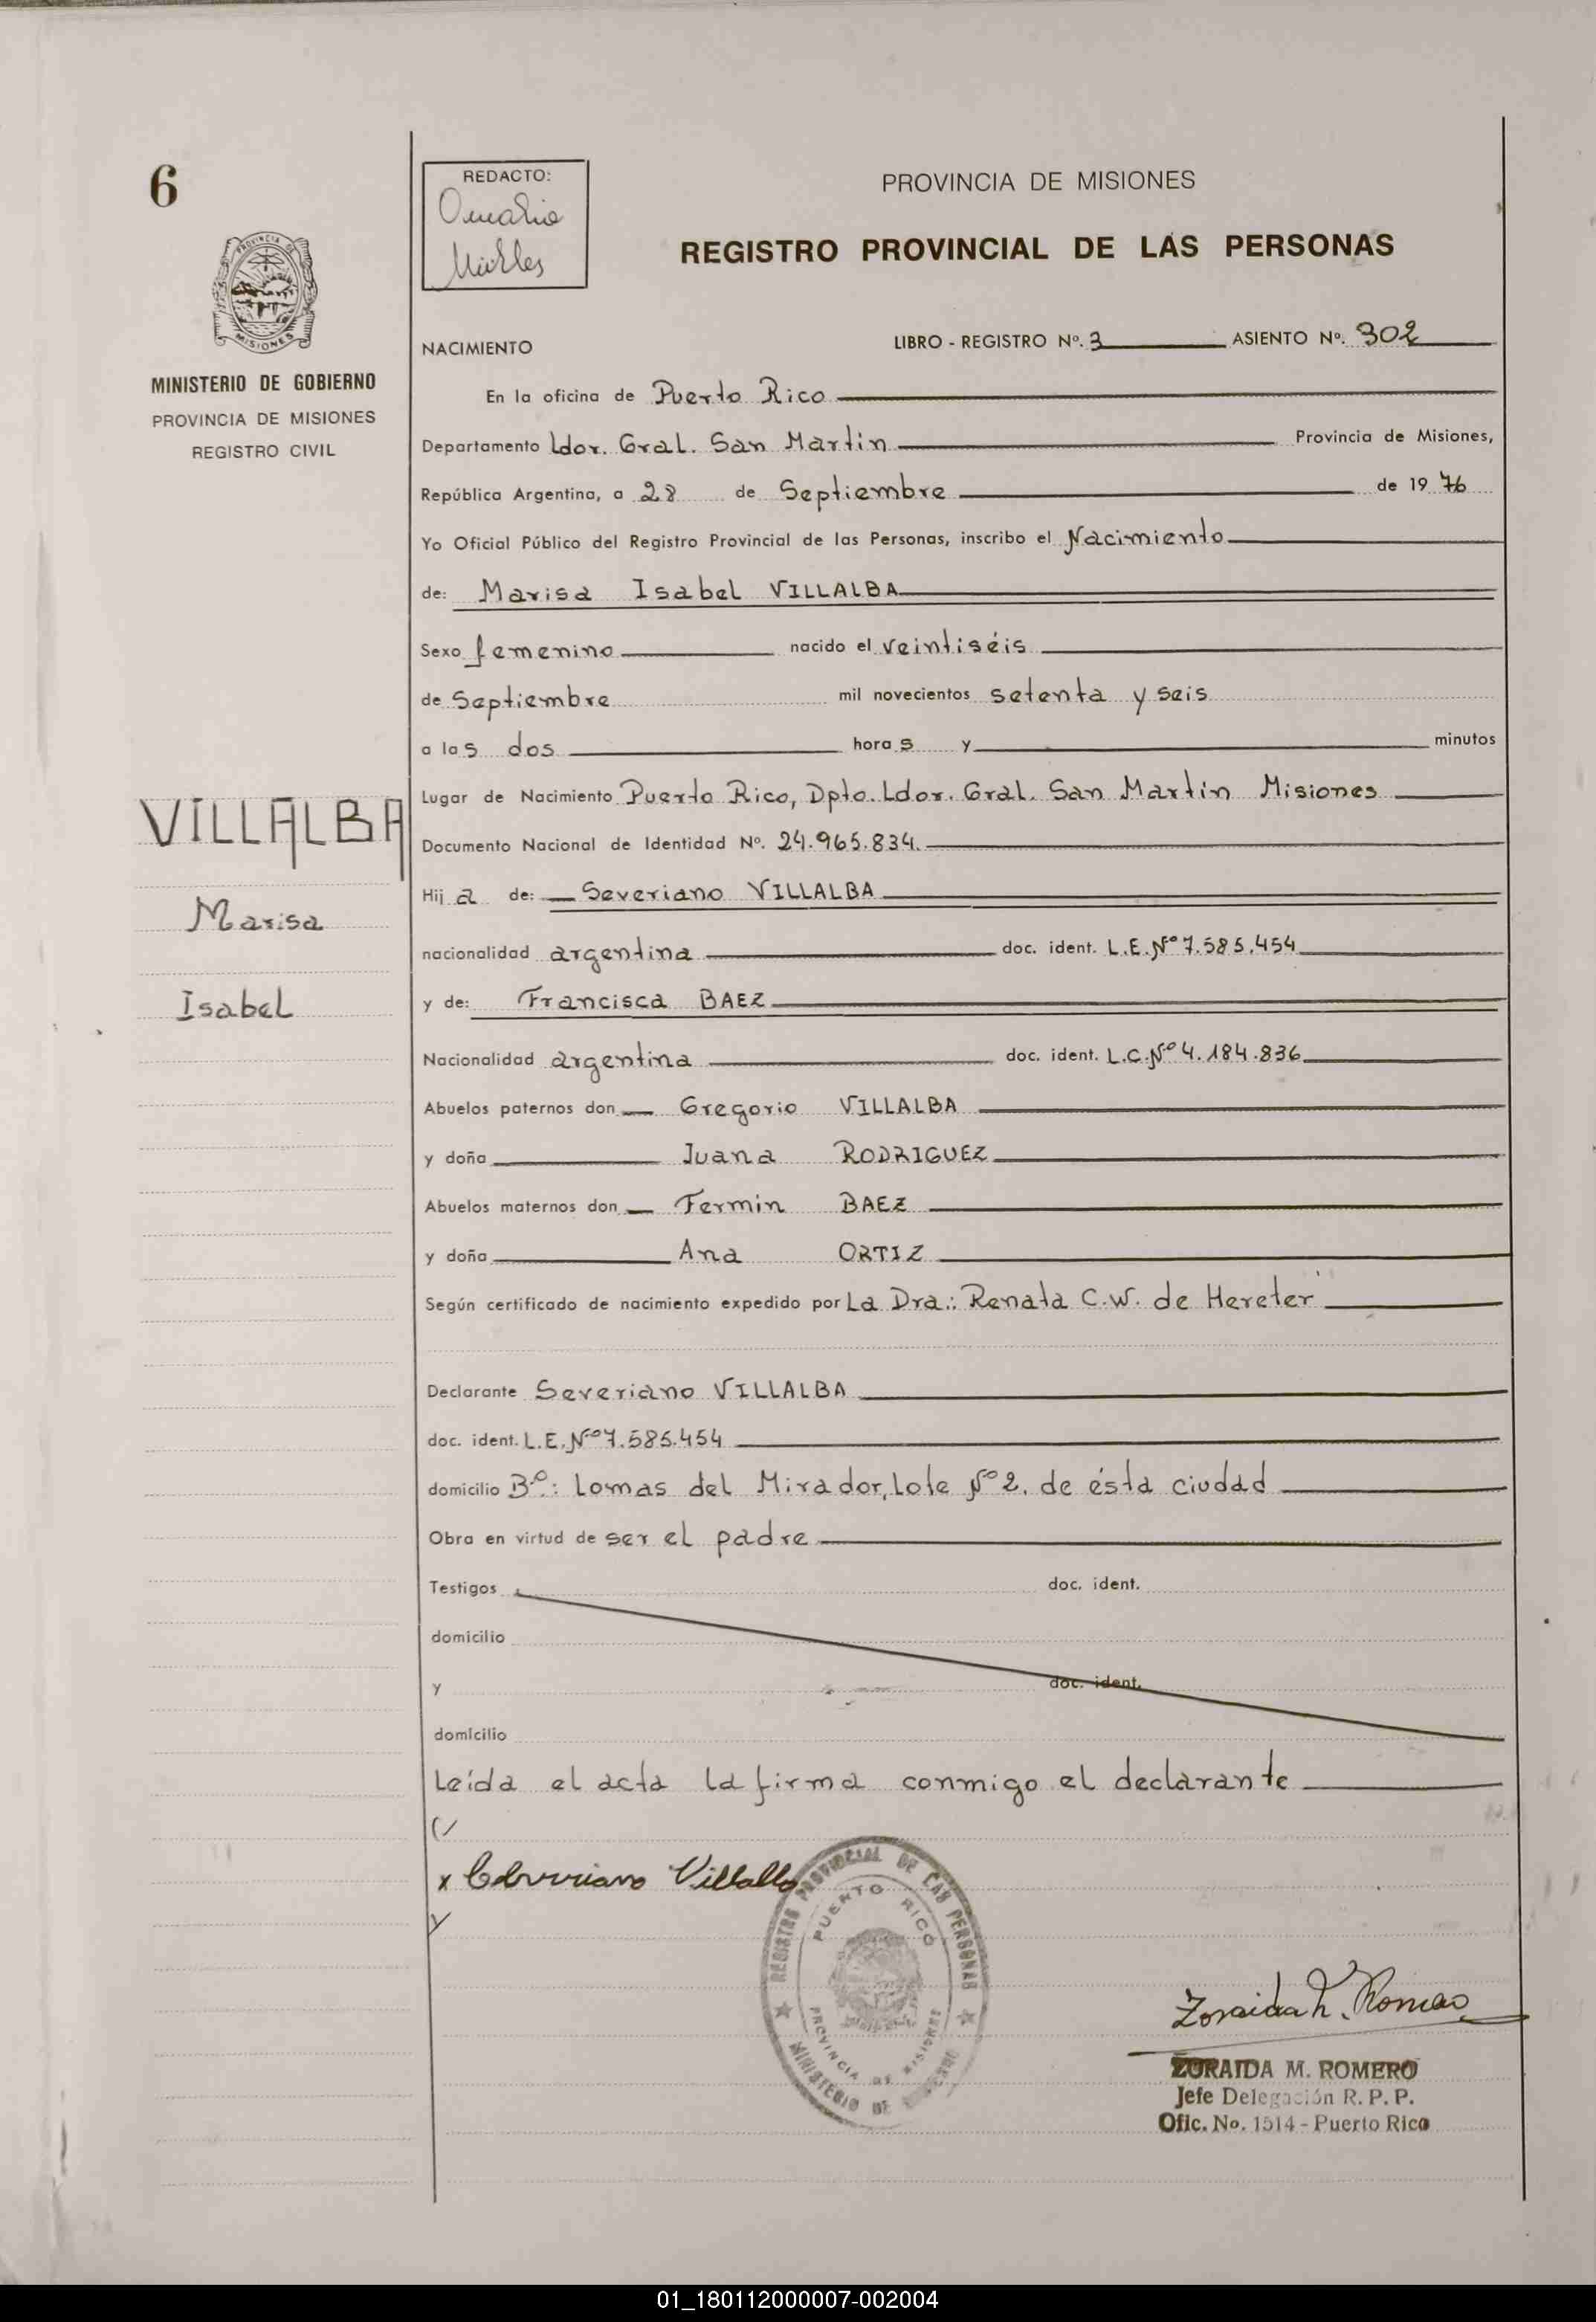 6
REDACTO:
PROVINCIA DE MISIONES
REGISTRO PROVINCIAL DE LAS PERSONAS
PROVINCIA DE
MISIONES
MINISTERIO DE GOBIERNO
PROVINCIA DE MISIONES
REGISTRO CIVIL
NACIMIENTO LIBRO - REGISTRO Nº. 3 ASIENTO Nº. 302
En la oficina de Puerto Rico
Departamento Ldor. Gral. San Martin Provincia de Misiones,
República Argentina, a 28 de Septiembre de 1976
Yo Oficial Público del Registro Provincial de las Personas, inscribo el Nacimiento
de: Marisa Isabel VILLALBA
Sexo femenino nacido el veintiséis
de Septiembre mil novecientos setenta y seis
a las dos horas y minutos
Lugar de Nacimiento Puerto Rico, Dpto. Ldor. Gral. San Martin Misiones
VILLALBA
Documento Nacional de Identidad Nº. 24.965.834.
Hija de: Severiano VILLALBA
Marisa
nacionalidad argentina doc. ident. L.E. Nº 7.585.454
Isabel
y de: Francisca BAEZ
Nacionalidad argentina doc. ident. L.C. Nº 4.184.836
Abuelos paternos don Gregorio VILLALBA
y doña Juana RODRIGUEZ
Abuelos maternos don Fermin BAEZ
y doña Ana ORTIZ
Según certificado de nacimiento expedido por La Dra.: Renata C.W. de Hereter
Declarante Severiano VILLALBA
doc. ident. L.E. Nº 7.585.454
domicilio Bº: Lomas del Mirador, Lote Nº 2. de ésta ciudad
Obra en virtud de ser el padre
Testigos doc. ident.
domicilio
y doc. ident.
domicilio
Leída el acta la firma conmigo el declarante
x Villalba
REGISTRO PROVINCIAL DE LAS PERSONAS
PUERTO RICO
PROVINCIA DE MISIONES
MINISTERIO DE GOBIERNO
Zoraida M. Romero
ZORAIDA M. ROMERO
Jefe Delegación R. P. P.
Ofic. No. 1514 - Puerto Rico
01_180112000007-002004